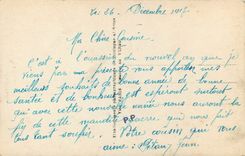 Le 26 Décembre 1917
Ma Chère Cousine
C'est à l'occasion du nouvel an que je
viens par ma présente vous apporter mes
meilleurs souhaits de bonne année de bonne
santé et de bonheur en espérant surtout
qu'avec cette nouvelle année nous aurons la
fin de cette maudite guerre qui nous fait
tous tant souffrir. Votre cousin qui vous
aime: Jean
P.P